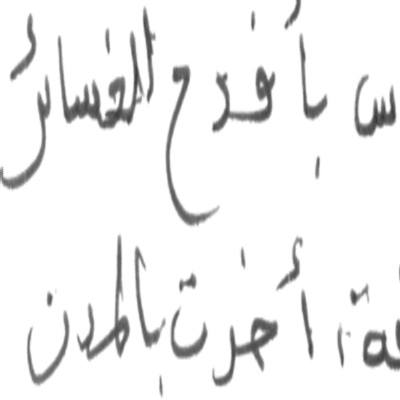 س بأفدح الخسائر
فة، أخذت بالمدن